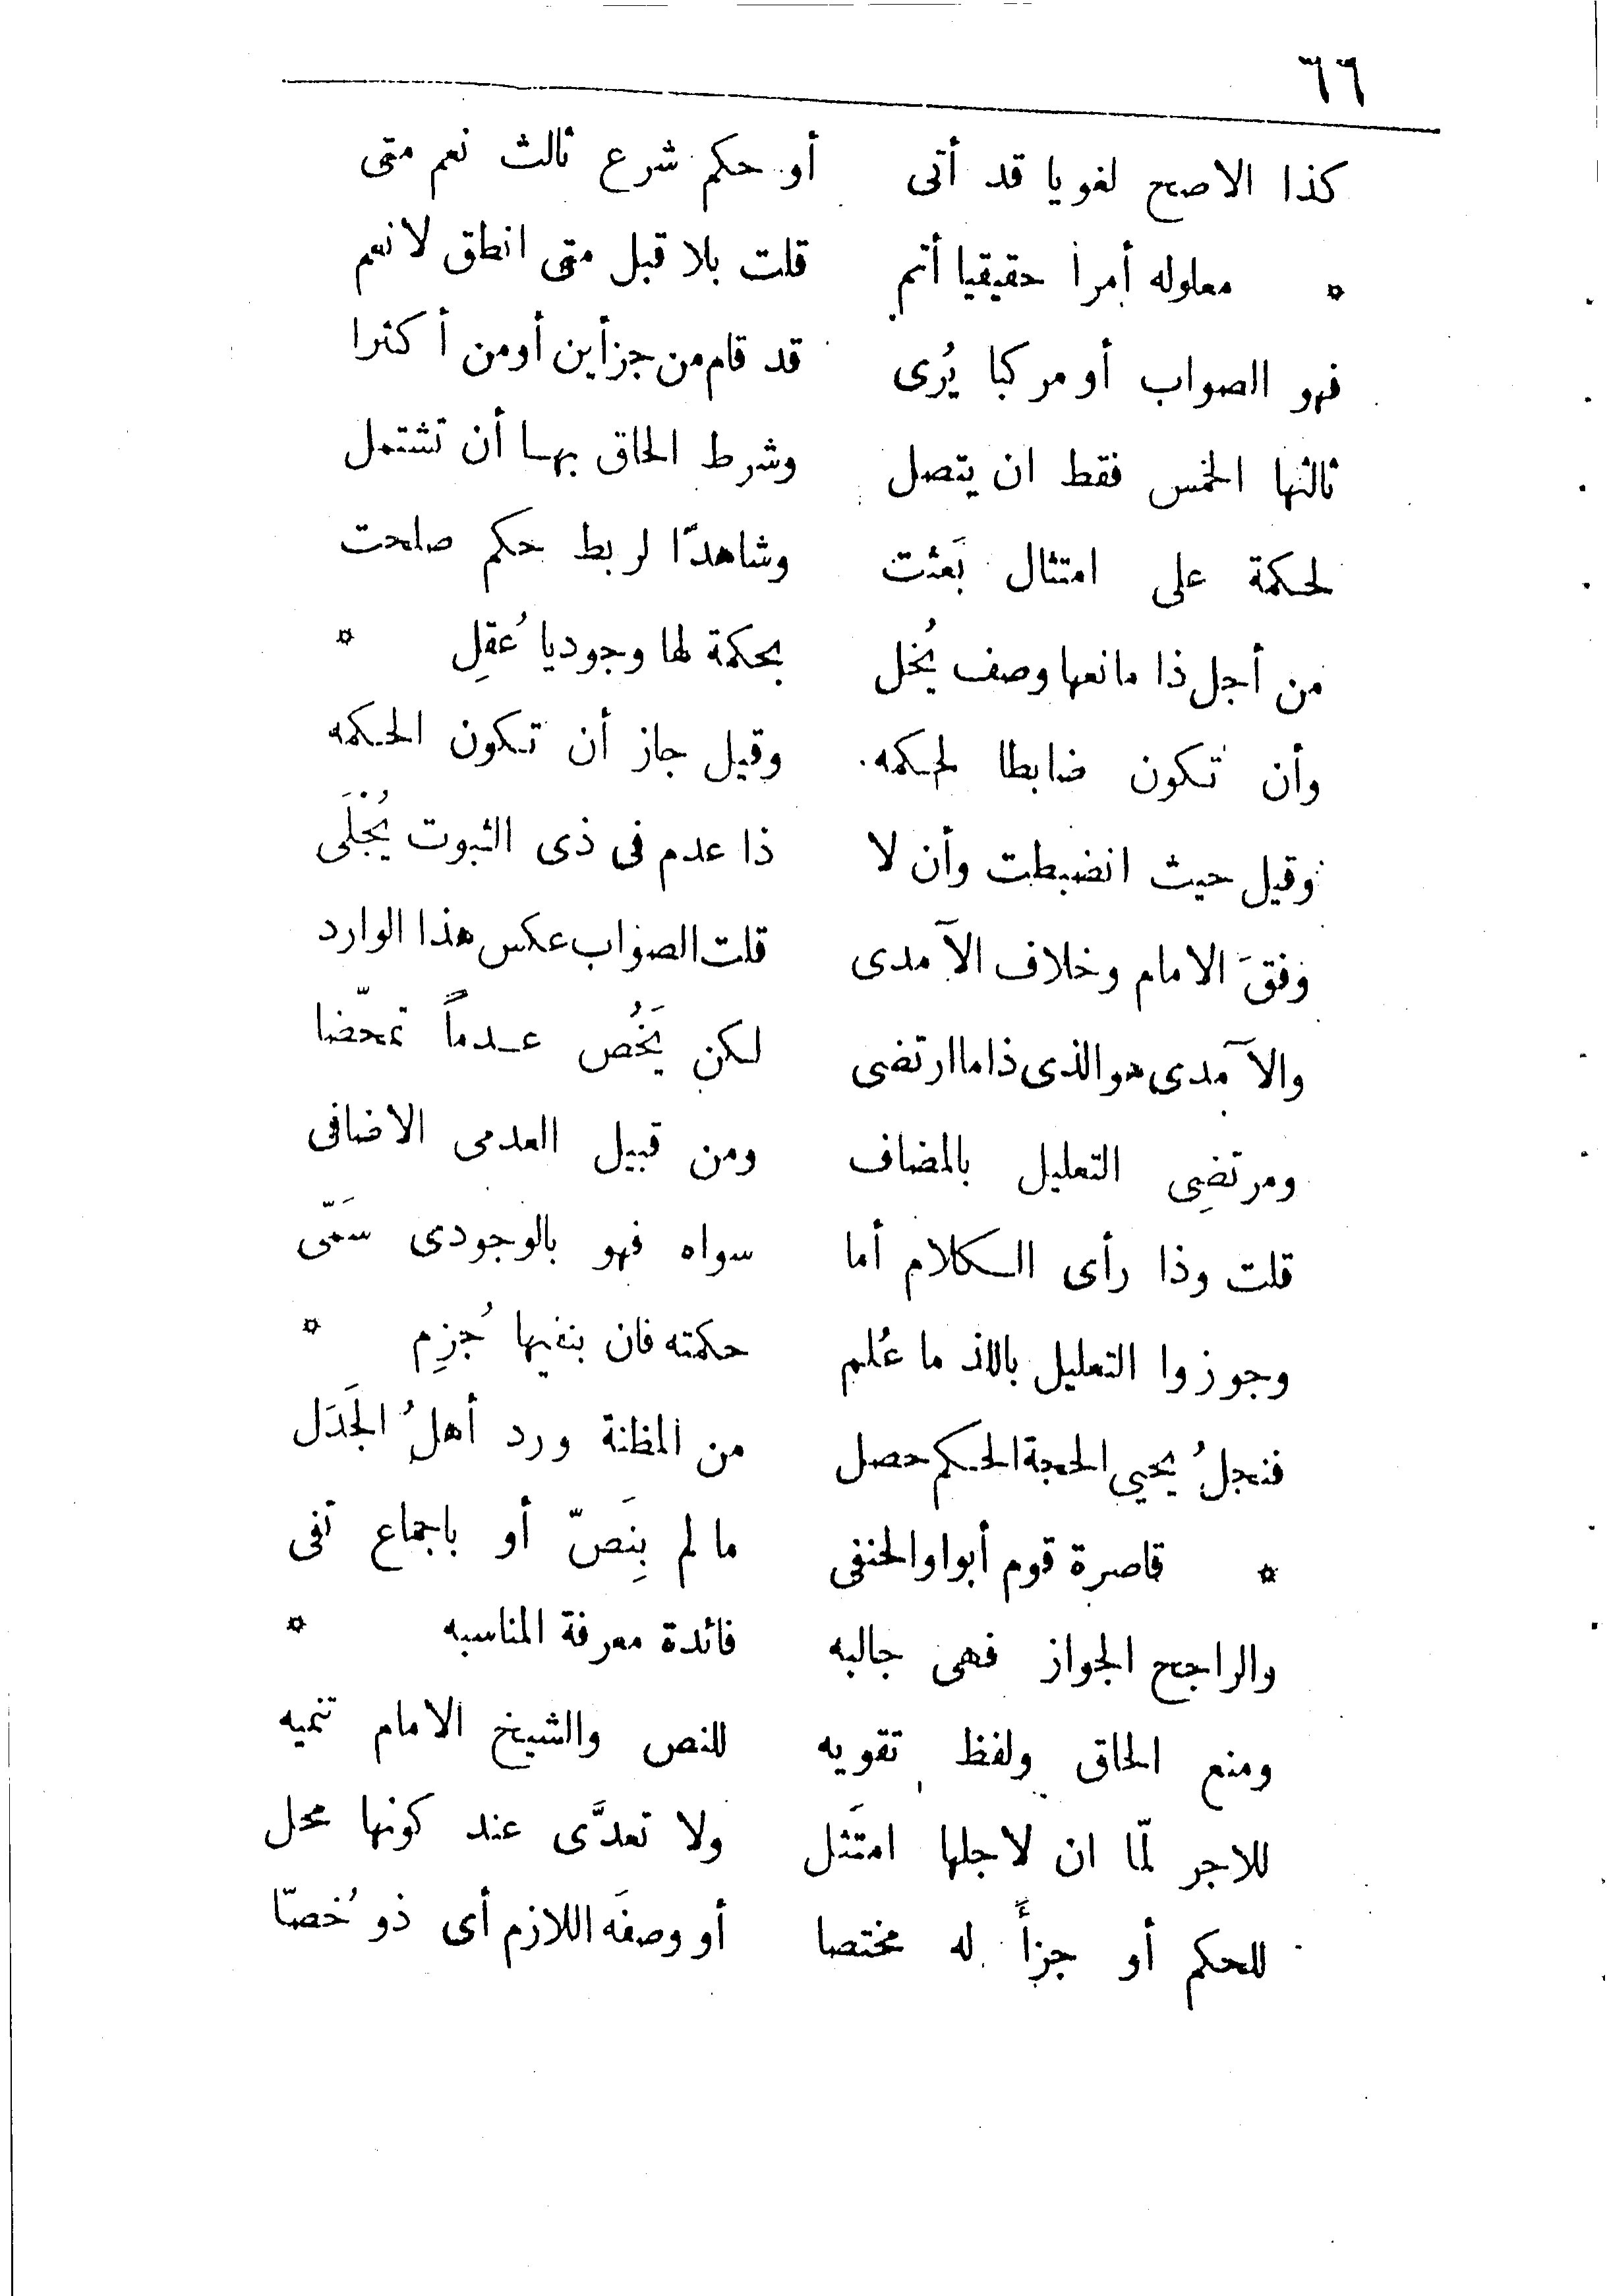 ٦٦
كذا الاصح لغويا قد أتى أو حكم شرع ثالث نعم متى
* معلوله أمرا حقيقيا أتم قلت بلا قبل متى انطق لا نعم
فهو الصواب أو مركبا يُرى قد قام من جزأين أو من أكثرا
ثالثها الخمس فقط ان يتصل وشرط الحاق بها أن تشتمل
لحكمة على امتثال بَعثت وشاهدًا لربط حكم صلحت
من أجل ذا مانعها وصف يُخل بحكمة لها وجوديا عُقِل *
وأن تكون ضابطا لحكمه وقيل جاز أن تكون الحكمه
وقيل حيث انضبطت وأن لا ذا عدم فى ذى الثبوت يُجْلَى
وَفقَ الامام وخلاف الآمدى قلت الصواب عكس هذا الوارد
والآمدى هو الذى ذا ما ارتضى لكن يَخُص عدماً تمحّضا
ومرتضِى التعليل بالمضاف ومن قبيل العدمى الاضافى
قلت وذا رأى الكلام أما سواه فهو بالوجودى سَمّى
وجوزوا التعليل باللذ ما عُلم حكمته فان بنفيها جُزِم *
فنجلُ يحيى الحجة الحكم حصل من المظنة ورد أهلُ الجَدَل
* قاصرة قوم أبوا والحنفى ما لم بِنَصّ أو باجماع تفى
والراجح الجواز فهى جالبه فائدة معرفة المناسبه *
ومنع الحاق ولفظ تقويه للنص والشيخ الامام تنميه
للاجر لمّا ان لاجلها امتَثل ولا تعدَّى عند كونها محل
للحكم أو جزأً له مختصا أو وصفَه اللازم أى ذو خُصّا